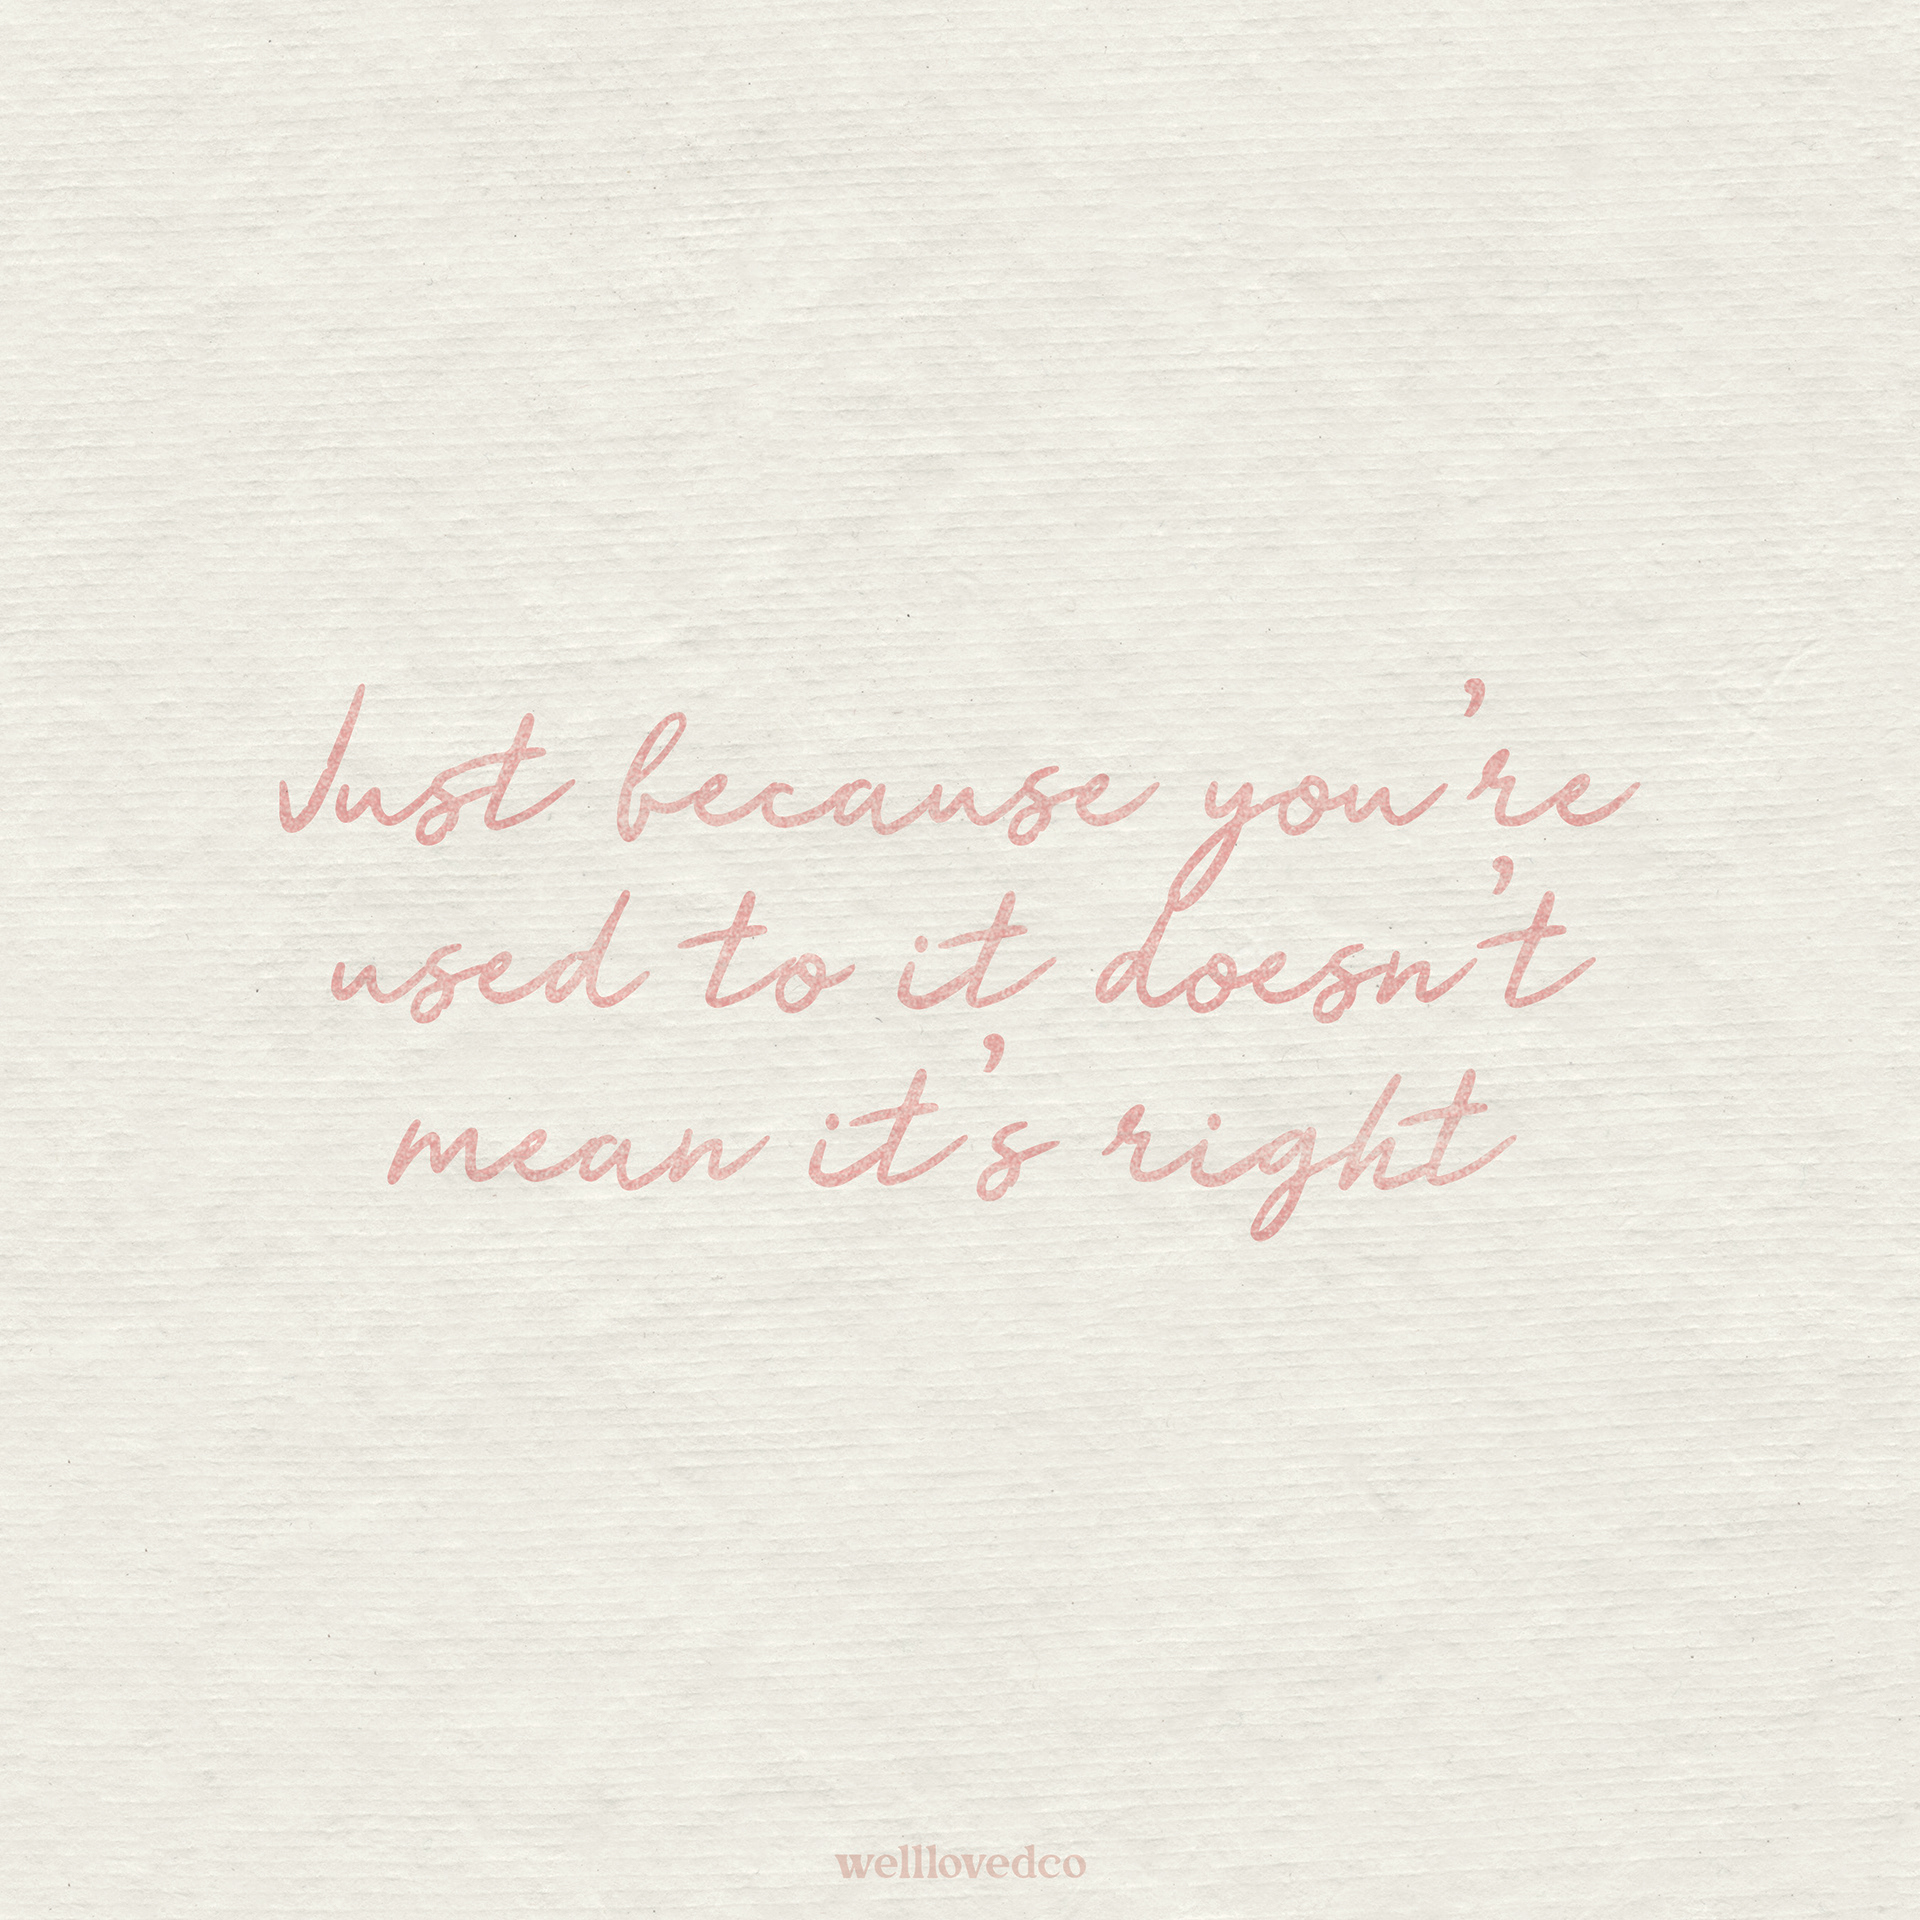 Just because you’re
used to it doesn’t
mean it’s right
welllovedco